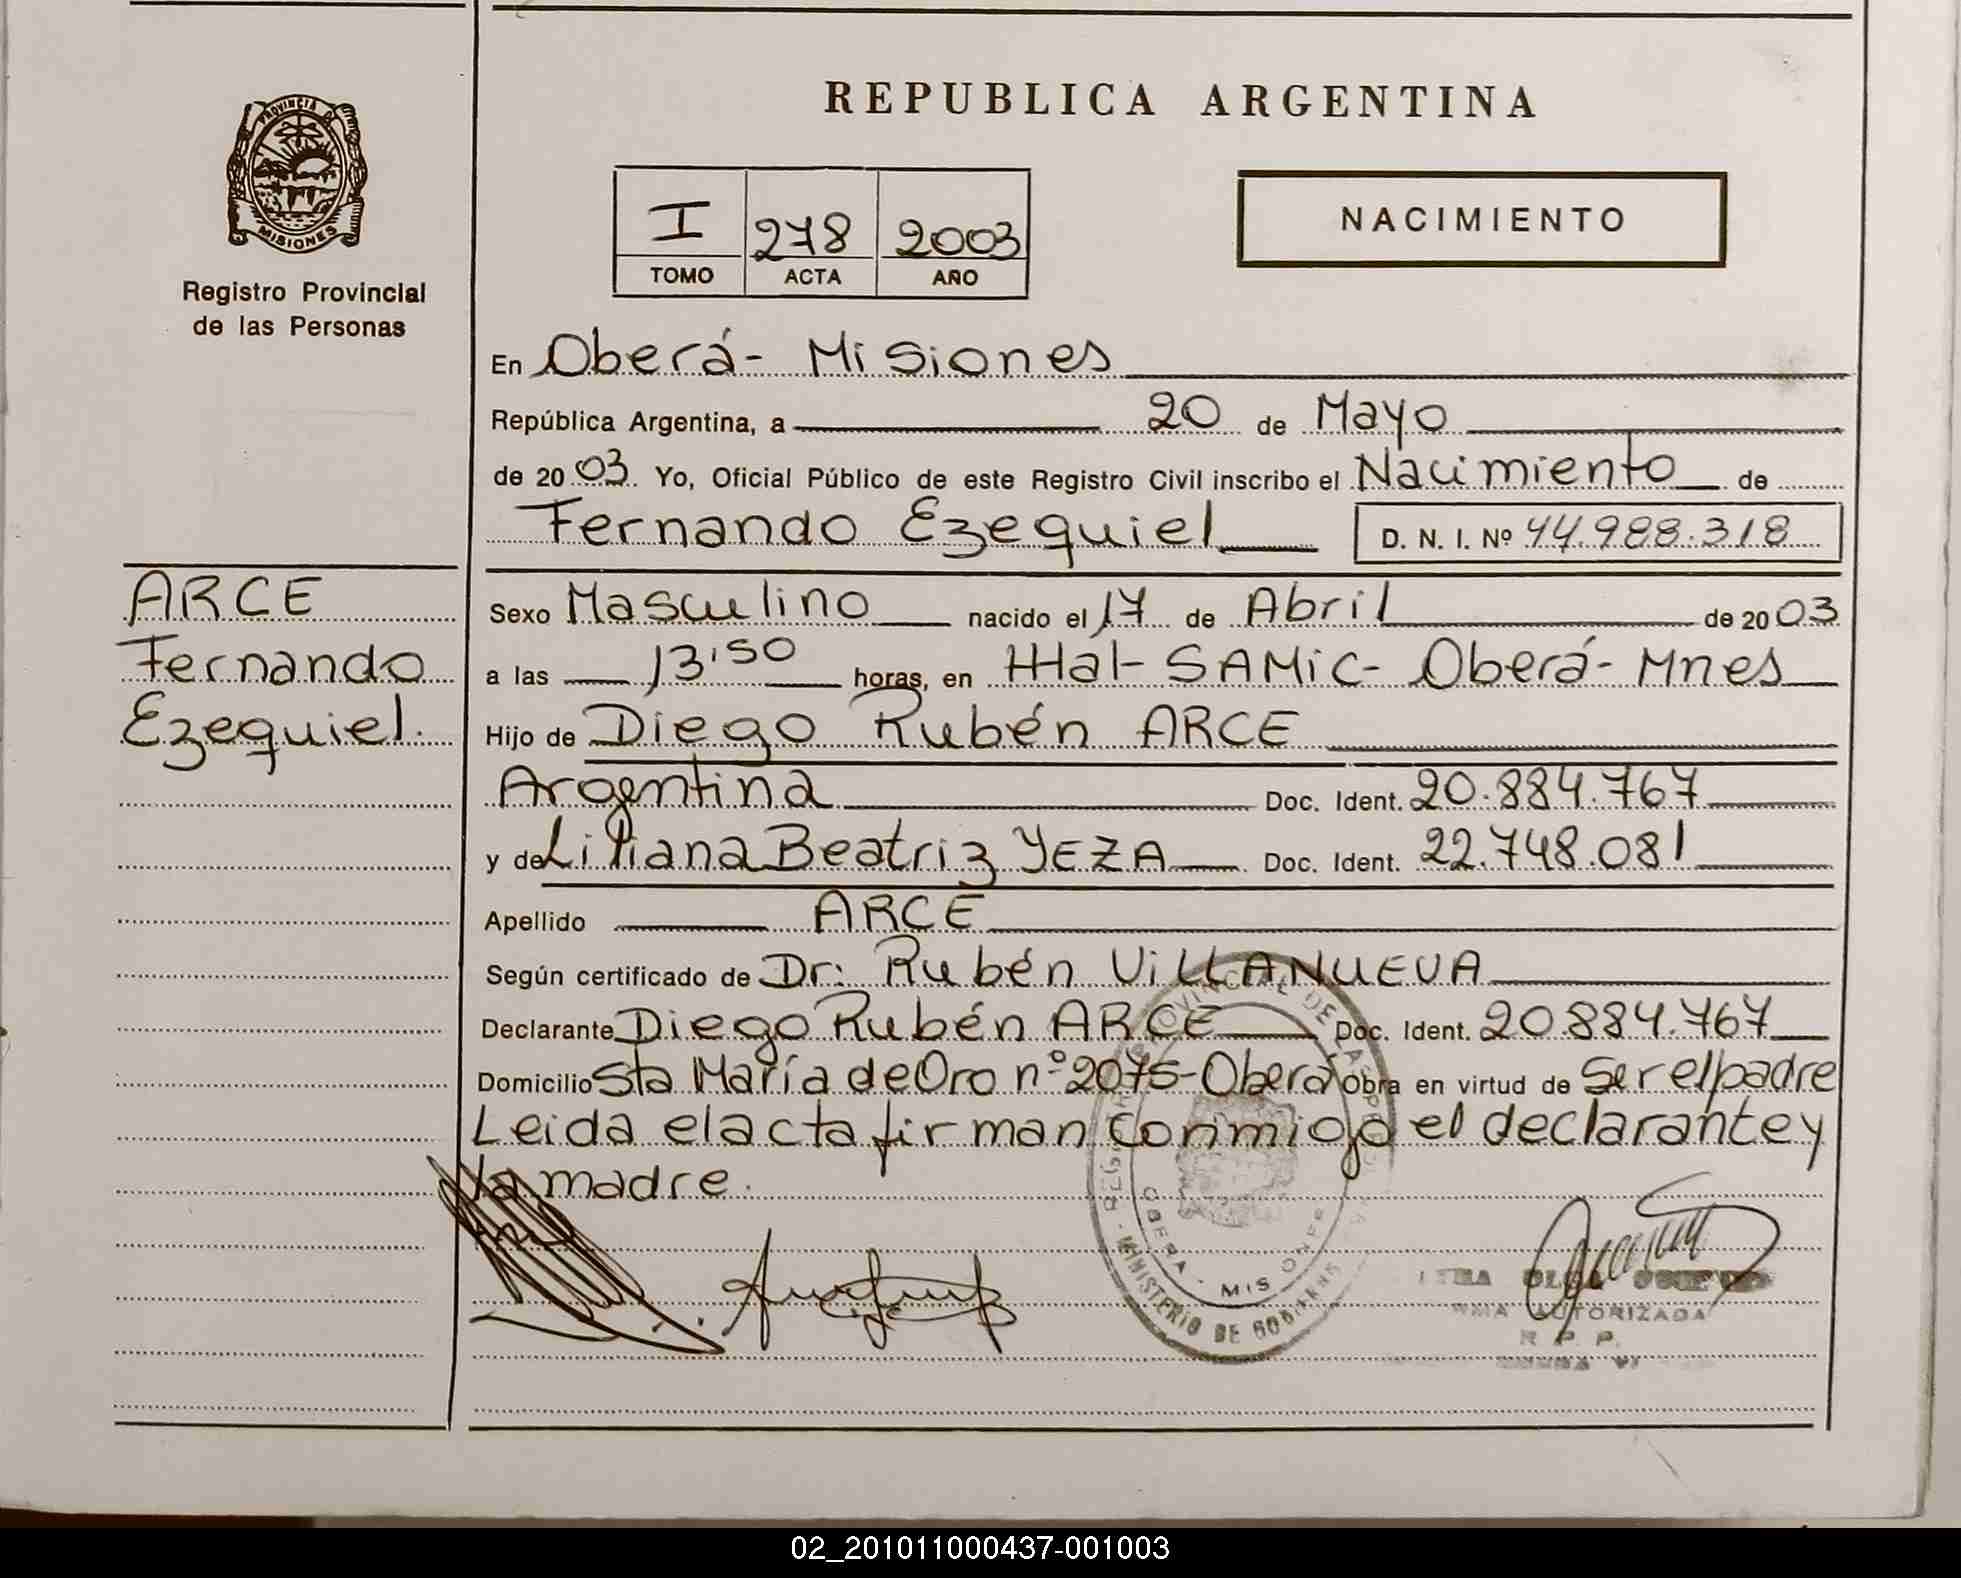 REPUBLICA ARGENTINA
PROVINCIA DE
MISIONES
Registro Provincial
de las Personas
I 278 2003
TOMO ACTA AÑO
NACIMIENTO
En Oberá- Misiones
República Argentina, a 20 de Mayo
de 2003. Yo, Oficial Público de este Registro Civil inscribo el Nacimiento de
Fernando Ezequiel D. N. I. Nº 44.988.318
ARCE
Fernando
Ezequiel.
Sexo Masculino nacido el 17 de Abril de 2003
a las 13'50 horas, en HHal- SAMIC- Oberá- Mnes
Hijo de Diego Rubén ARCE
Argentina Doc. Ident. 20.884.767
y de Liliana Beatriz YEZA Doc. Ident. 22.748.081
Apellido ARCE
Según certificado de Dr: Rubén VILLANUEVA
Declarante Diego Rubén ARCE Doc. Ident. 20.884.767
Domicilio Sta María de Oro nº 2075-Oberá obra en virtud de Ser el padre
Leida el acta firman conmigo el declarante y
la madre.
MINISTERIO DE
OBERA - MISIONES
OLGA
AUTORIZADA
R. P. P.
02_201011000437-001003